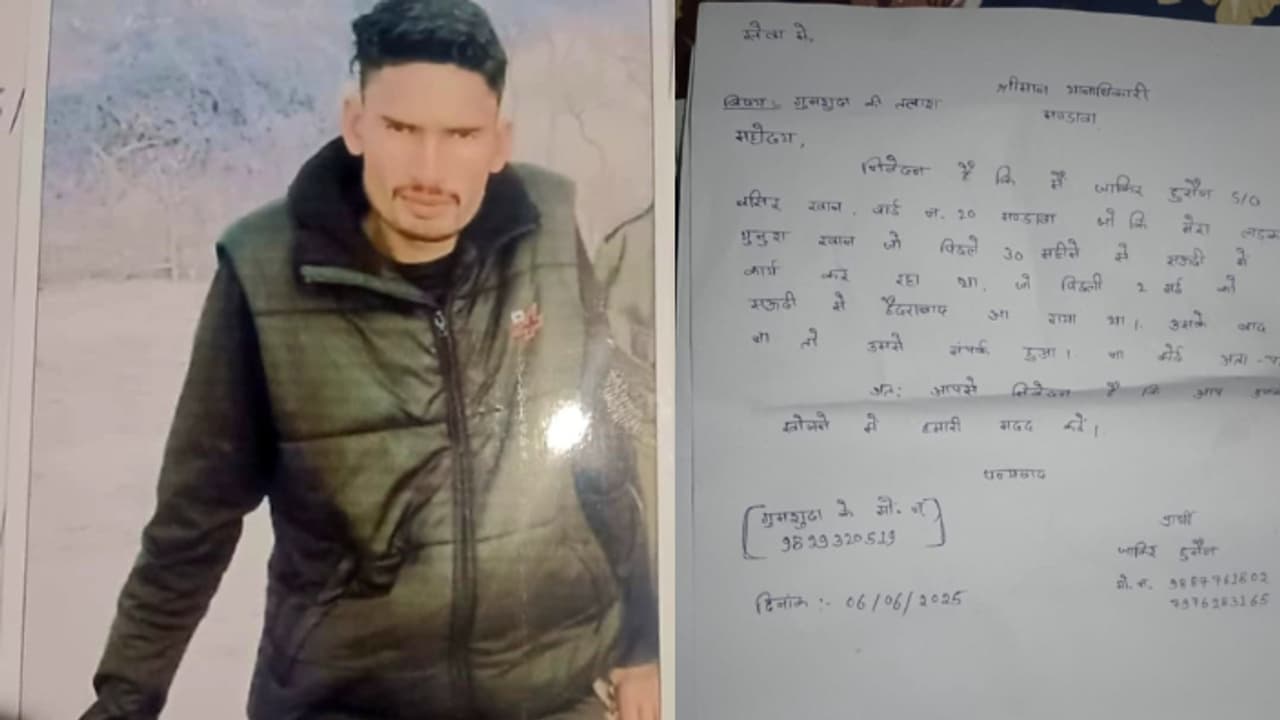 सेवा मे,
श्रीमान थानाधिकारी
मण्डावा
विषय :- गुमशुदा की तलाश
महोदय,
निवेदन है कि मैं जाकिर हुसैन S/O
खान . वार्ड न. 20 मण्डावा जो कि मेरा
खान जो पिछले 30 महीने से सऊदी मे
कार्य कर रहा था. जो पिछली 2 मई को
सऊदी से हैदराबाद आ गया था। उसके बाद
ना तो उससे संपर्क हुआ। ना कोई अता-
अत: आपसे निवेदन है कि आप
खोजने मे हमारी मदद करे।
धन्यवाद
[गुमशुदा के मो. न.]
9829320519
प्रार्थी
जाकिर हुसैन
मो. न.
दिनांक :- 06/06/2025